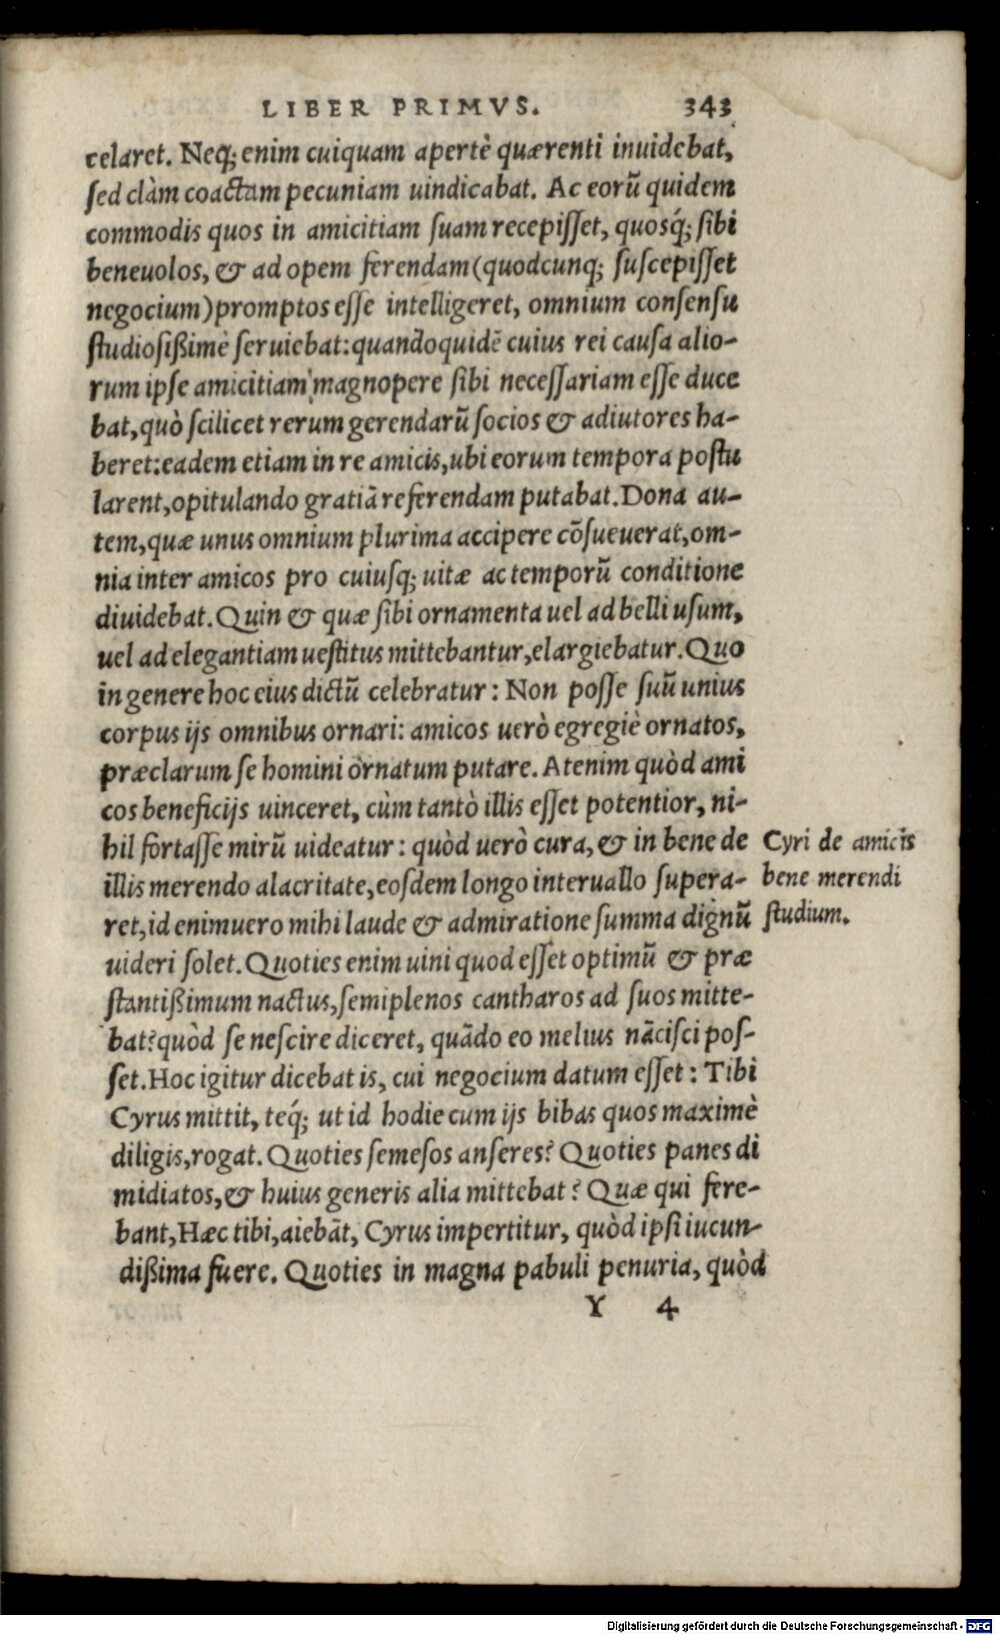 LIBER PRIMVS. 343
celaret. Neq; enim cuiquam apertè quærenti inuidebat,
ſed clàm coactam pecuniam uindicabat. Ac eorũ quidem
commodis quos in amicitiam ſuam recepiſſet, quosq́; ſibi
beneuolos, & ad opem ferendam (quodcunq; ſuſcepiſſet
negocium) promptos eſſe intelligeret, omnium conſenſu
ſtudioſißimè ſeruiebat: quandoquidẽ cuius rei cauſa alio-
rum ipſe amicitiam magnopere ſibi neceſſariam eſſe duce
bat, quò ſcilicet rerum gerendarũ ſocios & adiutores ha-
beret: eadem etiam in re amicis, ubi eorum tempora poſtu
larent, opitulando gratiã referendam putabat. Dona au-
tem, quæ unus omnium plurima accipere cõſueuerat, om-
nia inter amicos pro cuiusq; uitæ ac temporũ conditione
diuidebat. Quin & quæ ſibi ornamenta uel ad belli uſum,
uel ad elegantiam ueſtitus mittebantur, elargiebatur. Quo
in genere hoc eius dictũ celebratur: Non poſſe ſuũ unius
corpus ijs omnibus ornari: amicos uerò egregiè ornatos,
præclarum ſe homini ornatum putare. Atenim quòd ami
cos beneficijs uinceret, cùm tantò illis eſſet potentior, ni-
hil fortaſſe mirũ uideatur: quòd uerò cura, & in bene de
illis merendo alacritate, eoſdem longo interuallo ſupera-
ret, id enimuero mihi laude & admiratione ſumma dignũ
uideri ſolet. Quoties enim uini quod eſſet optimũ & præ
ſtantißimum nactus, ſemiplenos cantharos ad ſuos mitte-
bat? quòd ſe neſcire diceret, quãdo eo melius nãciſci poſ-
ſet. Hoc igitur dicebat is, cui negocium datum eſſet: Tibi
Cyrus mittit, teq́; ut id hodie cum ijs bibas quos maximè
diligis, rogat. Quoties ſemeſos anſeres? Quoties panes di
midiatos, & huius generis alia mittebat? Quæ qui fere-
bant, Hæc tibi, aiebãt, Cyrus impertitur, quòd ipſi iucun-
dißima fuere. Quoties in magna pabuli penuria, quòd
Y 4
Cyri de amicis
bene merendi
ſtudium.
Digitalisierung gefördert durch die Deutsche Forschungsgemeinschaft - DFG